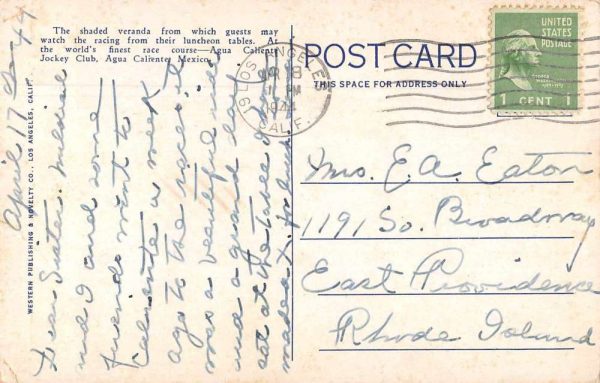 The shaded veranda from which guests may
watch the racing from their luncheon tables. At
the world's finest race course—Agua Caliente
Jockey Club, Agua Caliente, Mexico.
POST CARD
THIS SPACE FOR ADDRESS ONLY
LOS ANGELES
19
APR 18
PM
1944
CALIF.
UNITED STATES
POSTAGE
1 CENT 1
WESTERN PUBLISHING & NOVELTY CO., LOS ANGELES, CALIF.
April 17 - 44
Dear Sister. Mildred
and I and some
friends went to
Caliente a week
ago to the races, it
was a beautiful ride
and a grand day
sat at the tables
made
Mrs. E. A. Eaton
1191 So. Broadway
East Providence
Rhode Island